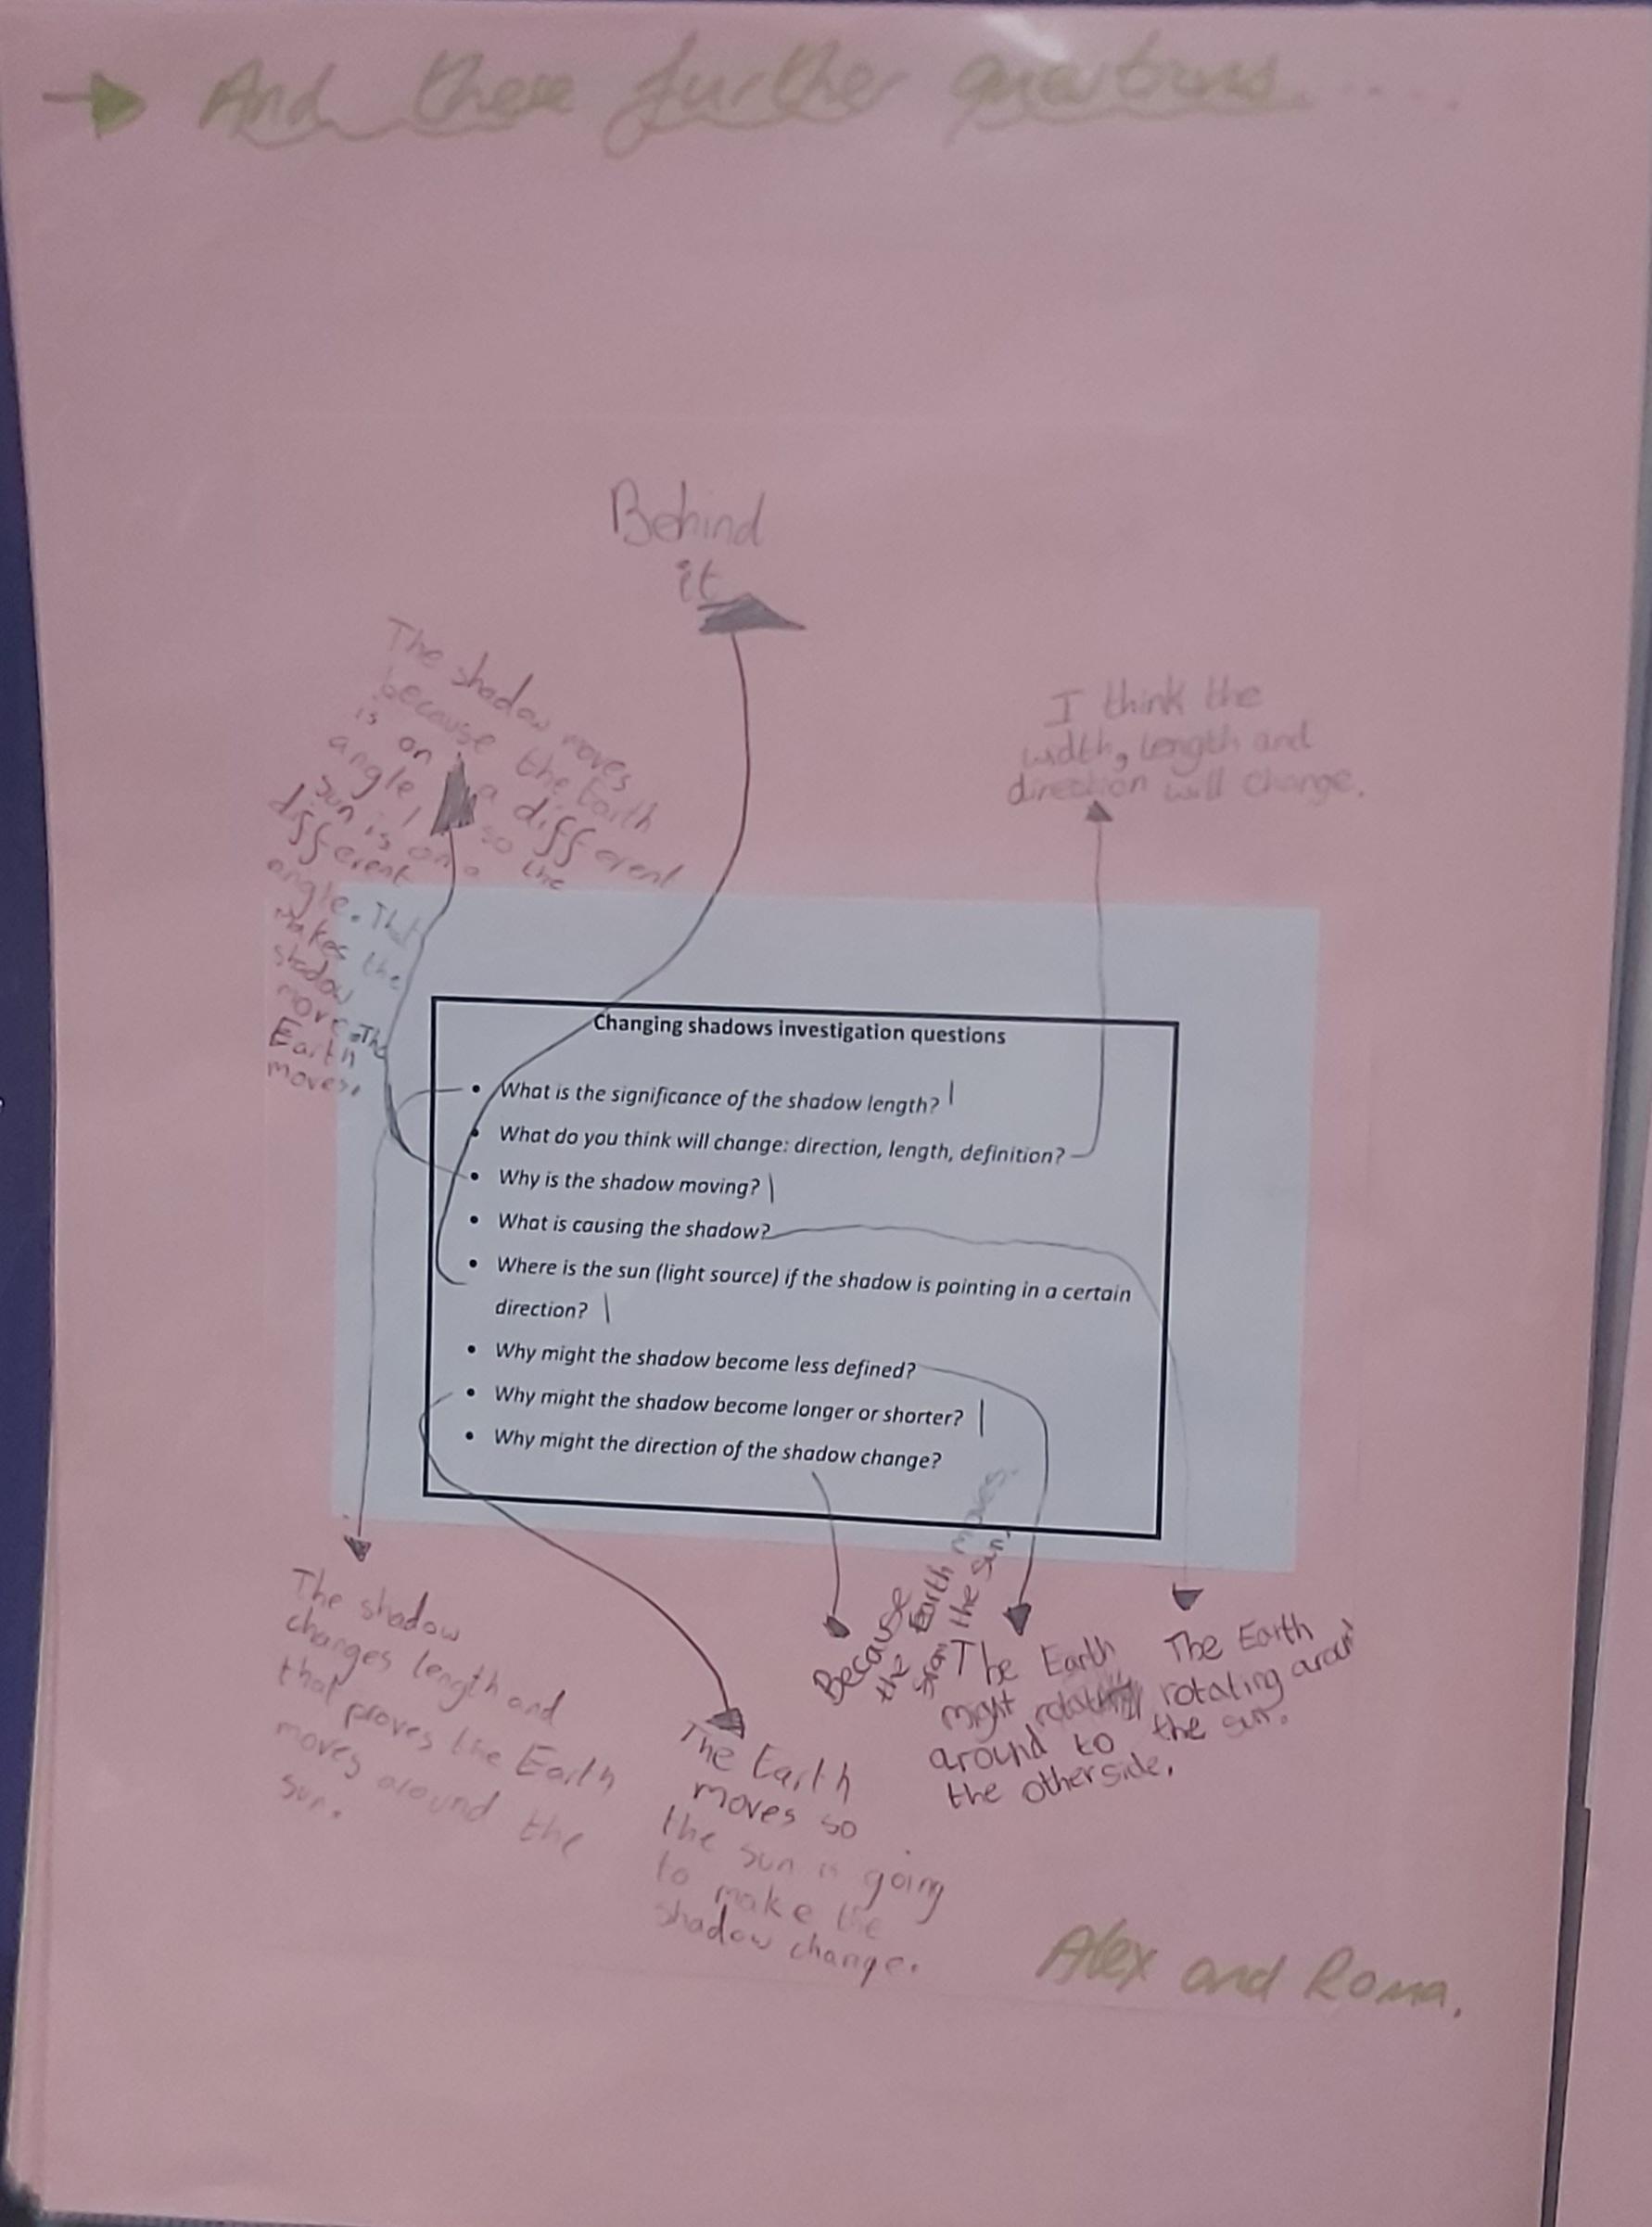 And these further questions.....
Behind
it
The shadow moves
because the Earth
is on a different
angle, so the
sun is on a
different
angle. That
makes the
shadow
move. The
Earth
moves.
I think the
width, length and
direction will change.
Changing shadows investigation questions
• What is the significance of the shadow length?
• What do you think will change: direction, length, definition?
• Why is the shadow moving?
• What is causing the shadow?
• Where is the sun (light source) if the shadow is pointing in a certain
direction?
• Why might the shadow become less defined?
• Why might the shadow become longer or shorter?
• Why might the direction of the shadow change?
The shadow
changes length and
that proves the Earth
moves around the
sun.
The Earth
moves so
the sun is going
to make the
shadow change.
Because
the Earth moves
the sun.
The Earth
might
around to
the other side.
The Earth
rotating around
the sun.
Alex and Roma.